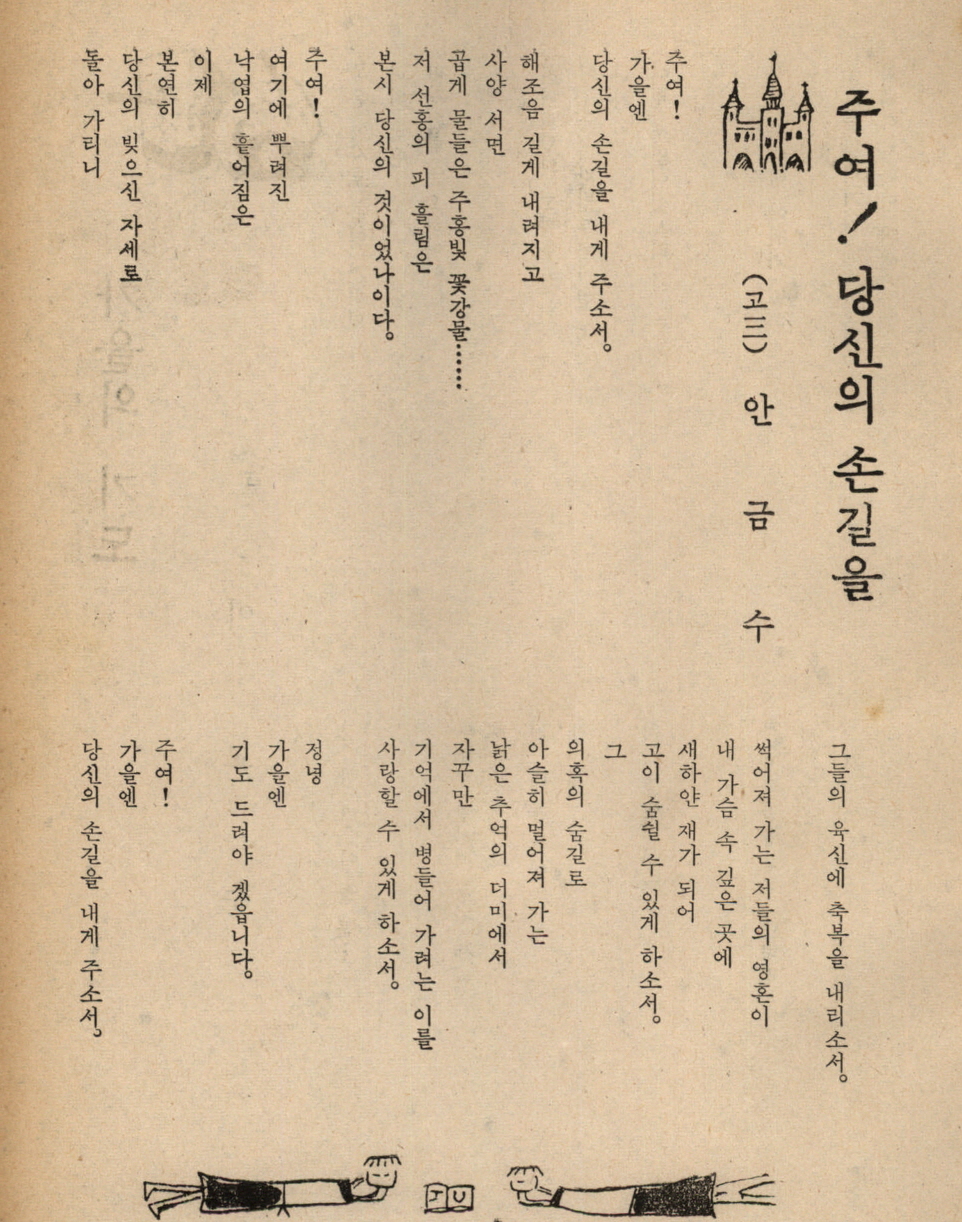 주여! 당신의 손길을
(고三) 안 금 수
주여!
가을엔
당신의 손길을 내게 주소서。
해조음 길게 내려지고
사양 서면
곱게 물들은 주홍빛 꽃강물……
저 선홍의 피 흘림은
본시 당신의 것이었나이다。
주여!
여기에 뿌려진
낙엽의 흩어짐은
이제
본연히
당신의 빚으신 자세로
돌아 가리니
그들의 육신에 축복을 내리소서。
썩어져 가는 저들의 영혼이
내 가슴 속 깊은 곳에
새하얀 재가 되어
고이 숨쉴 수 있게 하소서。
그
의혹의 숨길로
아슬히 멀어져 가는
낡은 추억의 더미에서
자꾸만
기억에서 병들어 가려는 이를
사랑할 수 있게 하소서。
정녕
가을엔
기도 드려야 겠읍니다。
주여!
가을엔
당신의 손길을 내게 주소서。